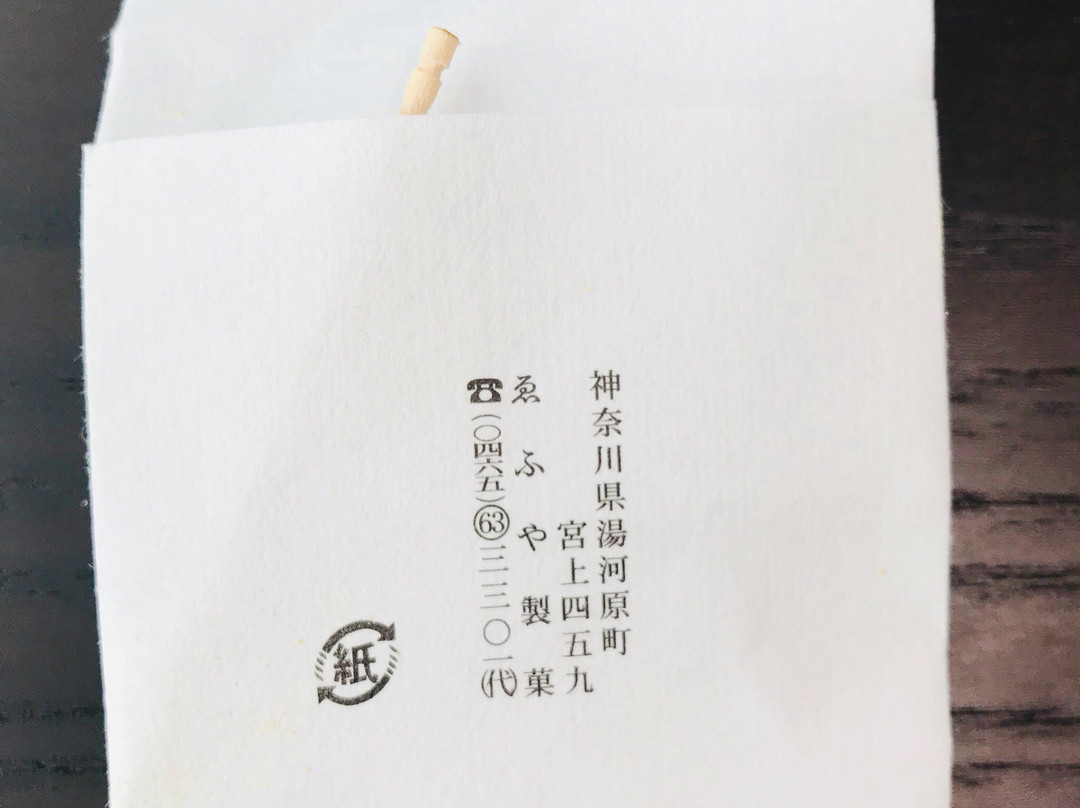 神奈川県湯河原町
宮上四五九
ゑふや製菓
☎(〇四六五)63三三〇一(代)
紙